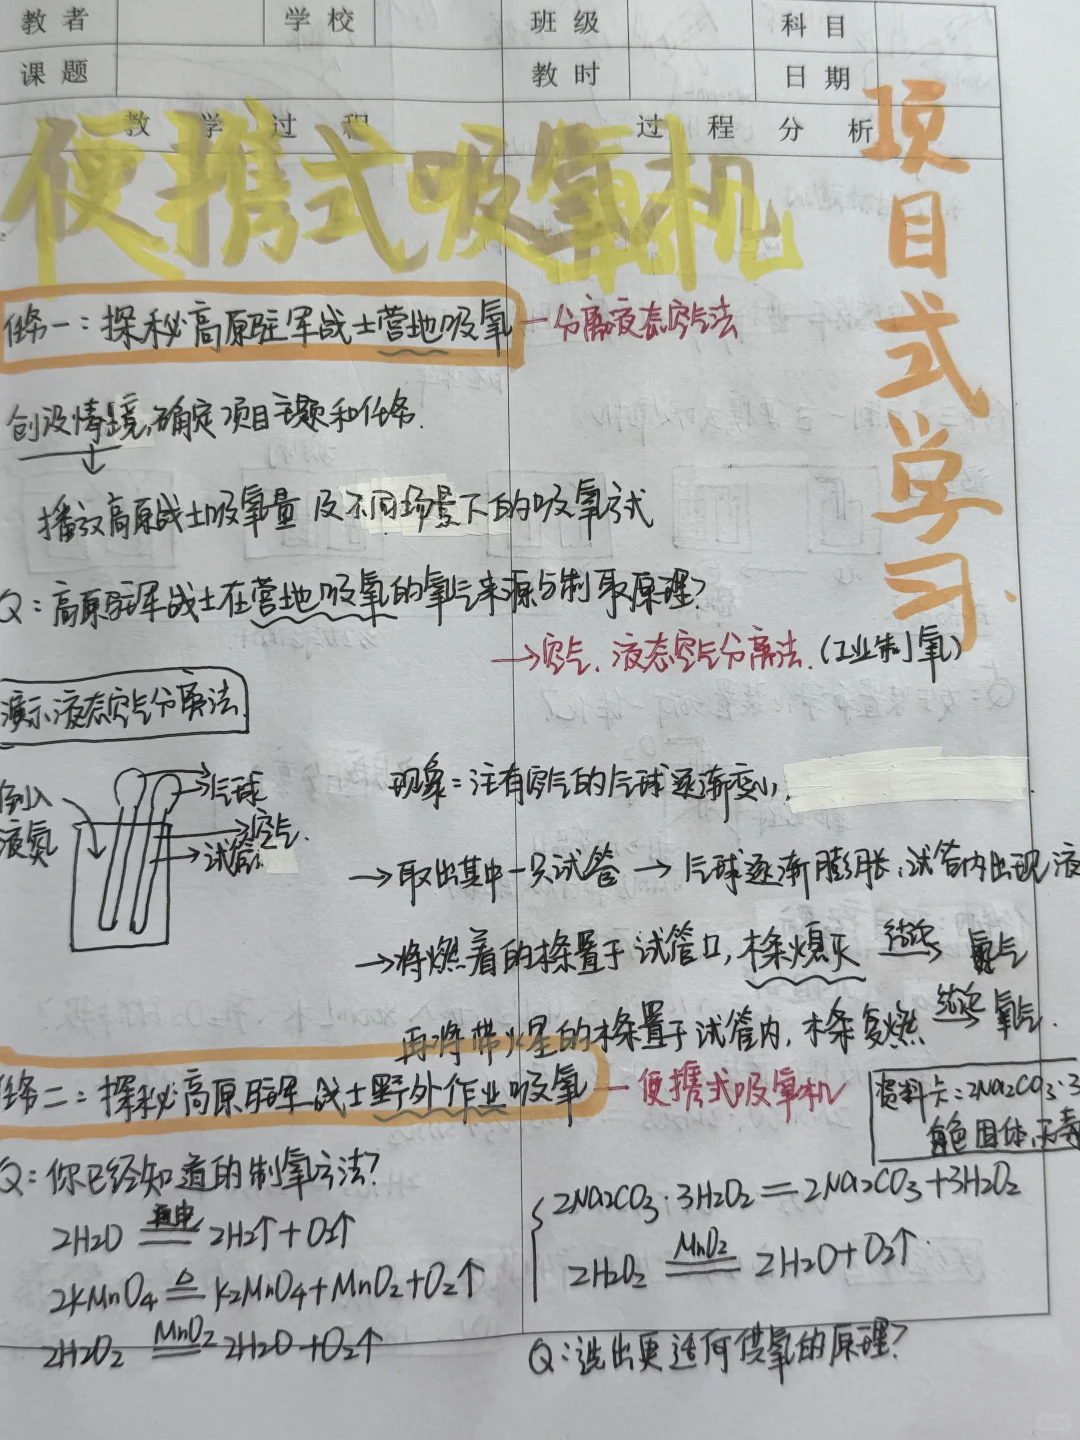 教者 学校 班级 科目
课题 教时 日期
教学过程 过程分析
便携式吸氧机
项目式学习
任务一：探秘高原驻军战士营地吸氧 — 分离液态空气法
创设情境,确定项目主题和任务.
播放高原战士吸氧量及不同场景下的吸氧方式
Q：高原驻军战士在营地吸氧的氧气来源与制取原理?
→空气. 液态空气分离法.(工业制氧)
演示液态空气分离法
倒入液氮
气球
空气.
试管.
现象：注有空气的气球逐渐变小,
→取出其中一只试管→气球逐渐膨胀,试管内出现液
→将燃着的木条置于试管口,木条熄灭 结论→ 氮气
再将带火星的木条置于试管内,木条复燃 结论→ 氧气.
任务二：探秘高原驻军战士野外作业吸氧 — 便携式吸氧机
资料卡：2Na2CO3·3
白色固体,无毒
Q：你已经知道的制氧方法?
2H2O 通电══ 2H2↑+O2↑
2KMnO4 △══ K2MnO4+MnO2+O2↑
2H2O2 MnO2══ 2H2O+O2↑
2Na2CO3·3H2O2══2Na2CO3+3H2O2
2H2O2 MnO2══ 2H2O+O2↑.
Q：选出更适何供氧的原理?